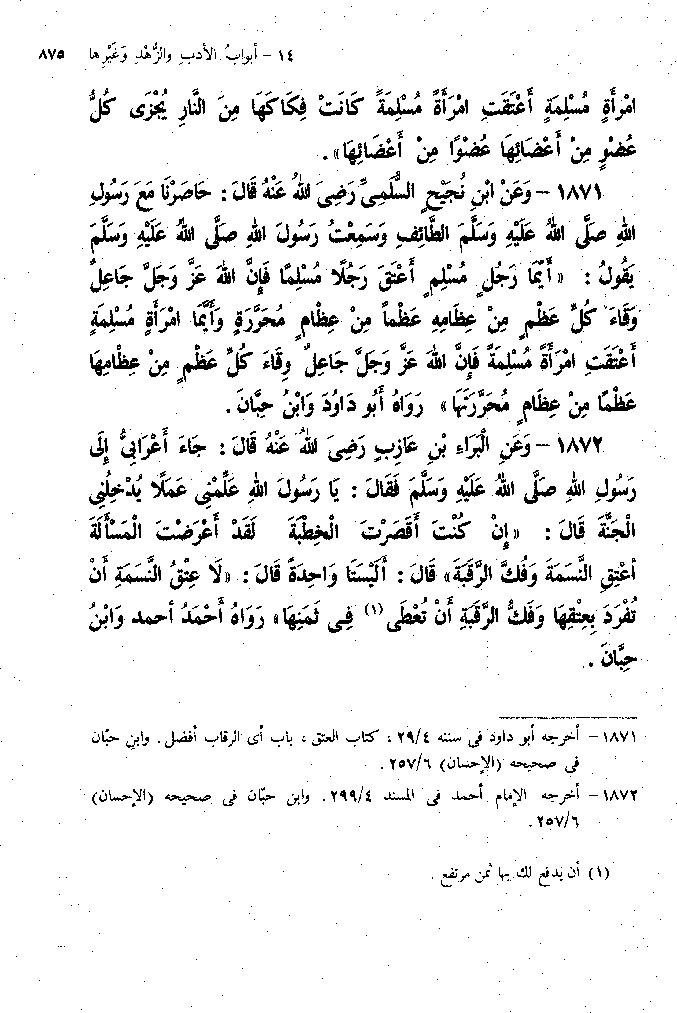 ١٤ - أبوابُ الأدبِ والزُّهْدِ وَغَيْرِها ٨٧٥
امْرأَةٍ مُسْلِمَةٍ أَعْتَقَتِ امْرَأَةً مُسْلِمَةً كَانَتْ فِكَاكَهَا مِنَ النَّارِ يُجْزَى كُلُّ
عُضْوٍ مِنْ أَعْضَائِهَا عُضْوًا مِنْ أَعْضَائِهَا» .
١٨٧١ - وَعَنْ ابْنِ نُجَيْحٍ السُّلَمِيِّ رَضِىَ اللهُ عَنْهُ قَالَ : حَاصَرْنَا مَعَ رَسُولِ
اللهِ صَلَّى اللهُ عَلَيْهِ وَسَلَّمَ الطَّائِفِ وَسَمِعْتُ رَسُولَ اللهِ صَلَّى اللهُ عَلَيْهِ وَسَلَّمَ
يَقُولُ : « أَيُّمَا رَجُلٍ مُسْلِمٍ أَعْتَقَ رَجُلًا مُسْلِمًا فَإِنَّ اللهَ عَزَّ وَجَلَّ جَاعِلٌ
وَقَاءَ كُلِّ عَظْمٍ مِنْ عِظَامِهِ عَظْماً مِنْ عِظَامٍ مُحَرَّرَةٍ وَأَيُّمَا امْرَأَةٍ مُسْلِمَةٍ
أَعْتَقَتِ امْرَأَةً مُسْلِمَةً فَإِنَّ اللهَ عَزَّ وَجَلَّ جَاعِلٌ وِقَاءَ كُلِّ عَظْمٍ مِنْ عِظَامِهَا
عَظْمًا مِنْ عِظَامٍ مُحَرَّرَتِهَا» رَوَاهُ أَبُو دَاوُدَ وَابْنُ حِبَّانَ .
١٨٧٢ - وَعَنِ الْبَرَاءِ بْنِ عَازِبٍ رَضِىَ اللهُ عَنْهُ قَالَ : جَاءَ أَعْرَابِيُّ إِلَى
رَسُولِ اللهِ صَلَّى اللهُ عَلَيْهِ وَسَلَّمَ فَقَالَ : يَا رَسُولَ اللهِ عَلِّمْنِى عَمَلًا يُدْخِلُنِى
الْجَنَّةَ قَالَ : «إِنْ كُنْتَ أَقَصَرْتَ الْخِطْبَةَ لَقَدْ أَعْرَضْتَ الْمَسْأَلَةَ
اعْتِقِ النَّسَمَةَ وَفُكَّ الرَّقَبَةَ» قَالَ : أَلَيْسَتَا وَاحِدَةً قَالَ : «لَا عِتْقُ النَّسَمَةِ أَنْ
تُفْرَدَ بِعِتْقِهَا وَفَكُّ الرَّقَبَةِ أَنْ تُعْطَى (١) فِى ثَمَنِهَا» رَوَاهُ أَحْمَدُ أحمد وَابْنُ
حِبَّانَ .
١٨٧١ - أخرجه أبو داود فى سننه ٢٩/٤ ، كتاب العتق ، باب أى الرقاب أفضل . وابن حبّان
فى صحيحه (الإحسان) ٢٥٧/٦ .
١٨٧٢ - أخرجه الإمام أحمد فى المسند ٢٩٩/٤ . وابن حبّان فى صحيحه (الإحسان)
٢٥٧/٦ .
(١) أن يدفع لك بها ثمن مرتفع .